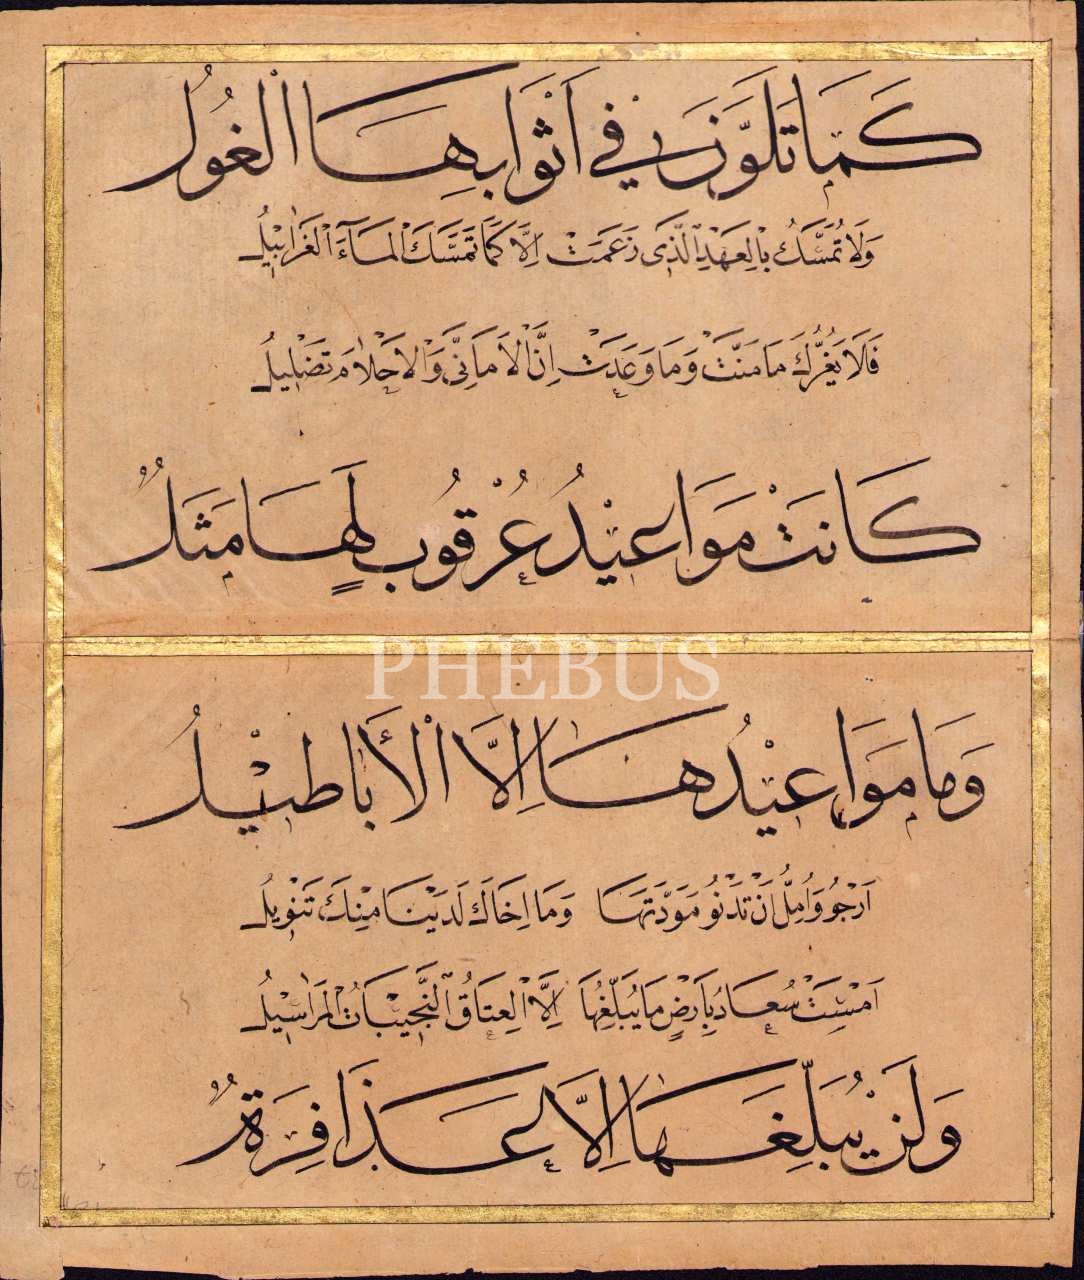 كَمَا تَلَوَّنَ فِي أَثْوَابِهَا الْغُولُ
وَلَا تَمَسَّكُ بِالْعَهْدِ الَّذِى زَعَمَتْ إِلَّا كَمَا تَمَسَّكَ الْمَاءَ الْغَرَابِيلُ
فَلَا يَغُرَّنْكَ مَا مَنَّتْ وَمَا وَعَدَتْ إِنَّ الْأَمَانِىَّ وَالْأَحْلَامَ تَضْلِيلُ
كَانَتْ مَوَاعِيدُ عُرْقُوبٍ لَهَا مَثَلٌ
PHEBUS
وَمَا مَوَاعِيْدُهَا إِلَّا الْأَبَاطِيْلُ
أَرْجُو وَآمُلُ أَنْ تَدْنُو مَوَدَّتُهَا وَمَا إِخَالُكَ لَدَيْنَا مِنْكَ تَنْوِيلُ
أَمْسَتْ سُعَادُ بِأَرْضٍ مَا يُبَلِّغُهَا إِلَّا الْعِتَاقُ النَّجِيبَاتُ الْمَرَاسِيْلُ
وَلَنْ يُبَلِّغَهَا إِلَّا عَذَافِرَةٌ